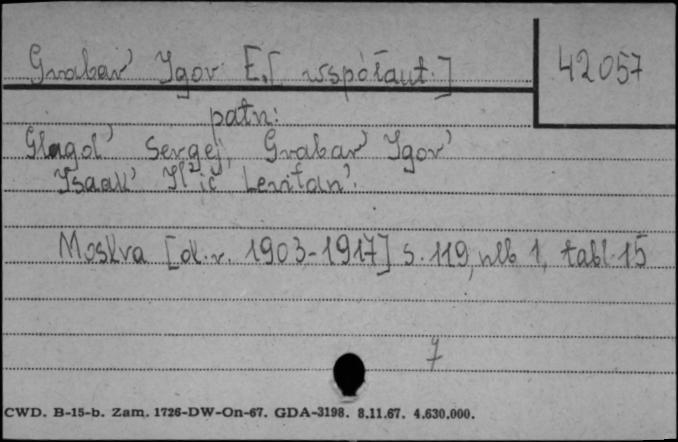 Grabar' Igor E. [współaut.]
42057
patrz:
Glagol' Sergej, Grabar' Igor'
Isaak' Il'ič Levitan'.
Moskva [ok. r. 1903-1917] s. 119, nlb 1, tabl. 15
7
CWD. B-15-b. Zam. 1726-DW-On-67. GDA-3198. 8.11.67. 4.630.000.